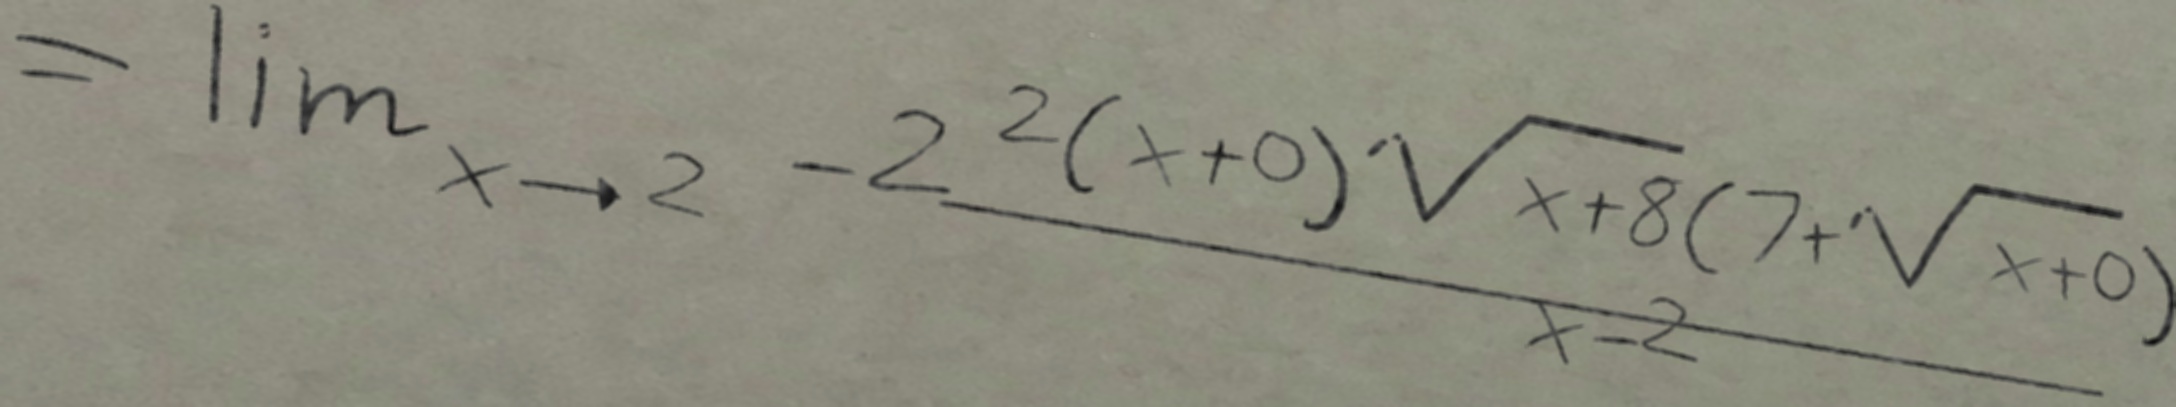 = \lim_{x \to 2} \frac{-2^2(x+0)\sqrt{x+8}(7+\sqrt{x+0})}{x-2}